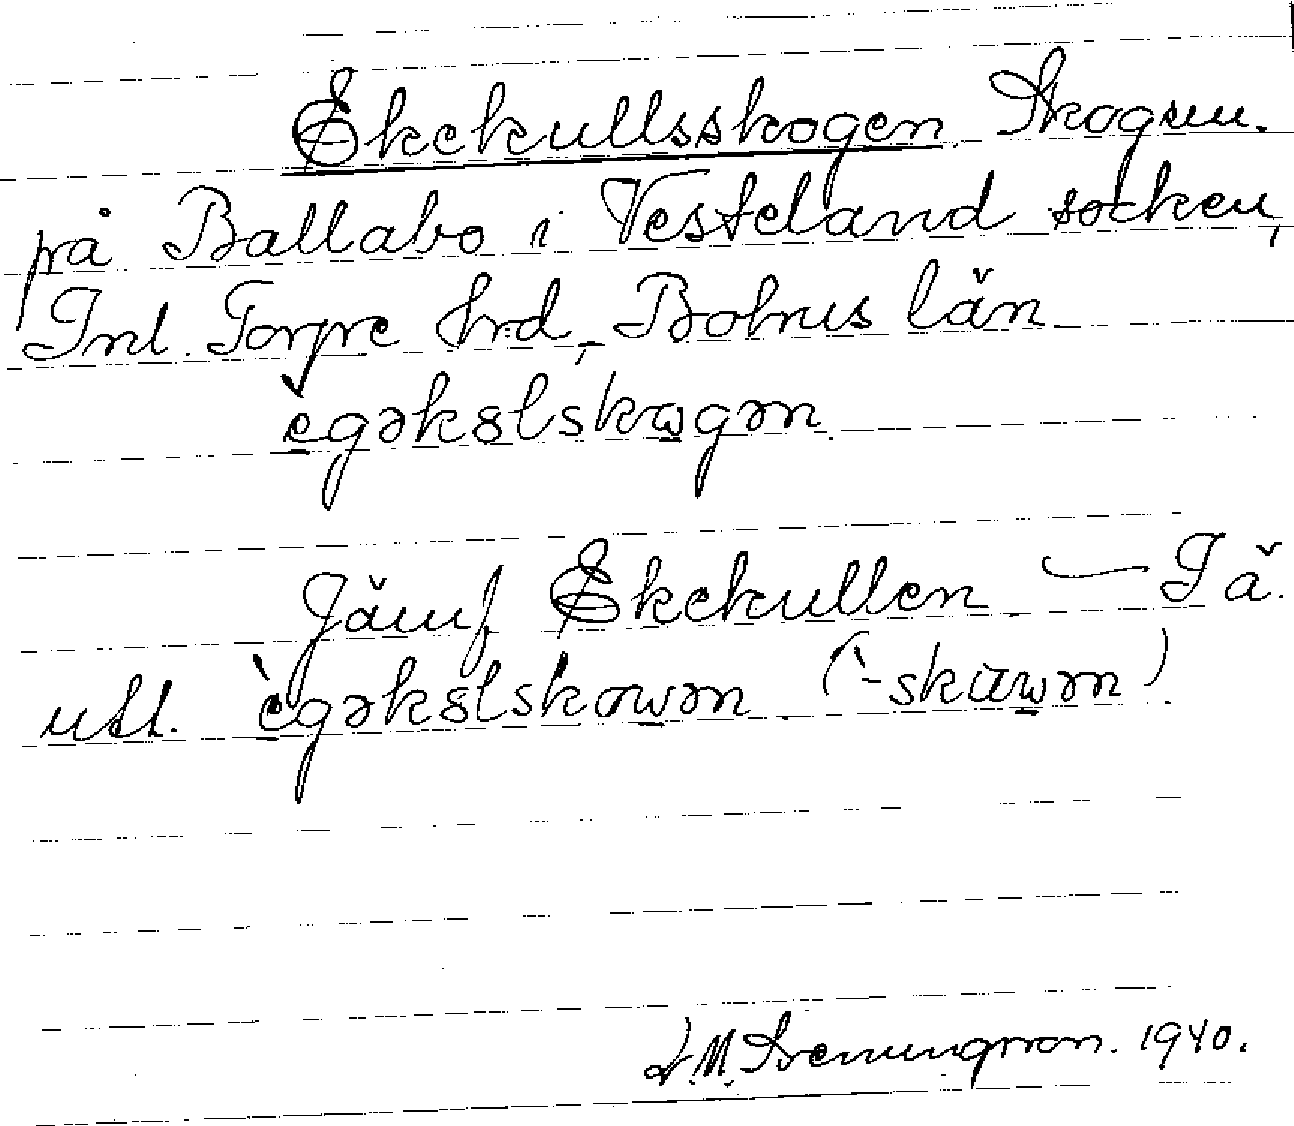 Ekekullsskogen Skogen.
på Ballabo i Vesteland socken,
Inl. Torpe hrd, Bohus län
ègəkslskωgən
Jämf Ekekullen — Tä.
utt. ègəkslskowən (`-skαwən).
1940.